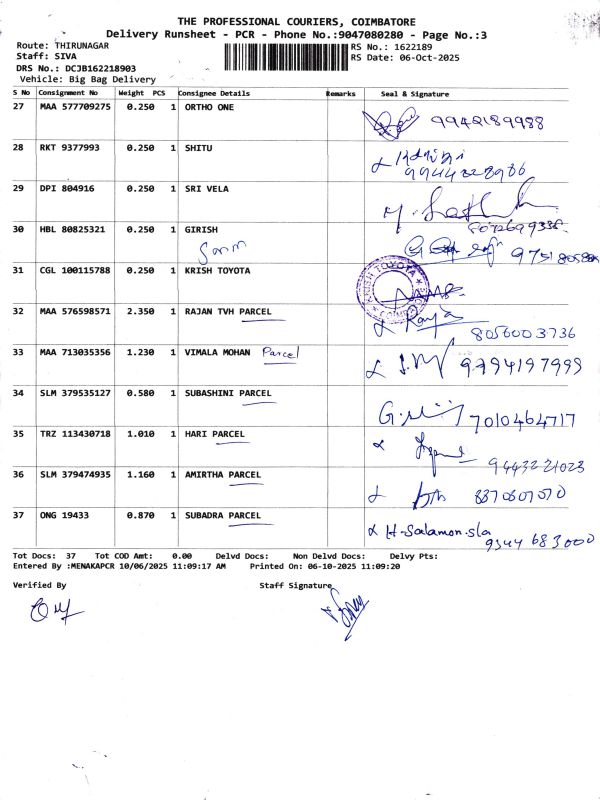 THE PROFESSIONAL COURIERS, COIMBATORE
Delivery Runsheet - PCR - Phone No.:9047080280 - Page No.:3
Route: THIRUNAGAR
Staff: SIVA
DRS No.: DCJB162218903
Vehicle: Big Bag Delivery
RS No.: 1622189
RS Date: 06-Oct-2025
S No Consignment No Weight PCS Consignee Details Remarks Seal & Signature
27 MAA 577709275 0.250 1 ORTHO ONE 9942189988
28 RKT 9377993 0.250 1 SHITU
29 DPI 804916 0.250 1 SRI VELA
30 HBL 80825321 0.250 1 GIRISH
31 CGL 100115788 0.250 1 KRISH TOYOTA KRISH TOYOTA
32 MAA 576598571 2.350 1 RAJAN TVH PARCEL Raja 8056003736
33 MAA 713035356 1.230 1 VIMALA MOHAN Parcel 9794197999
34 SLM 379535127 0.580 1 SUBASHINI PARCEL 7010464717
35 TRZ 113430718 1.010 1 HARI PARCEL 9443221023
36 SLM 379474935 1.160 1 AMIRTHA PARCEL
37 ONG 19433 0.870 1 SUBADRA PARCEL 9344683000
Tot Docs: 37 Tot COD Amt: 0.00 Delvd Docs: Non Delvd Docs: Delvy Pts:
Entered By :MENAKAPCR 10/06/2025 11:09:17 AM Printed On: 06-10-2025 11:09:20
Verified By Staff Signature